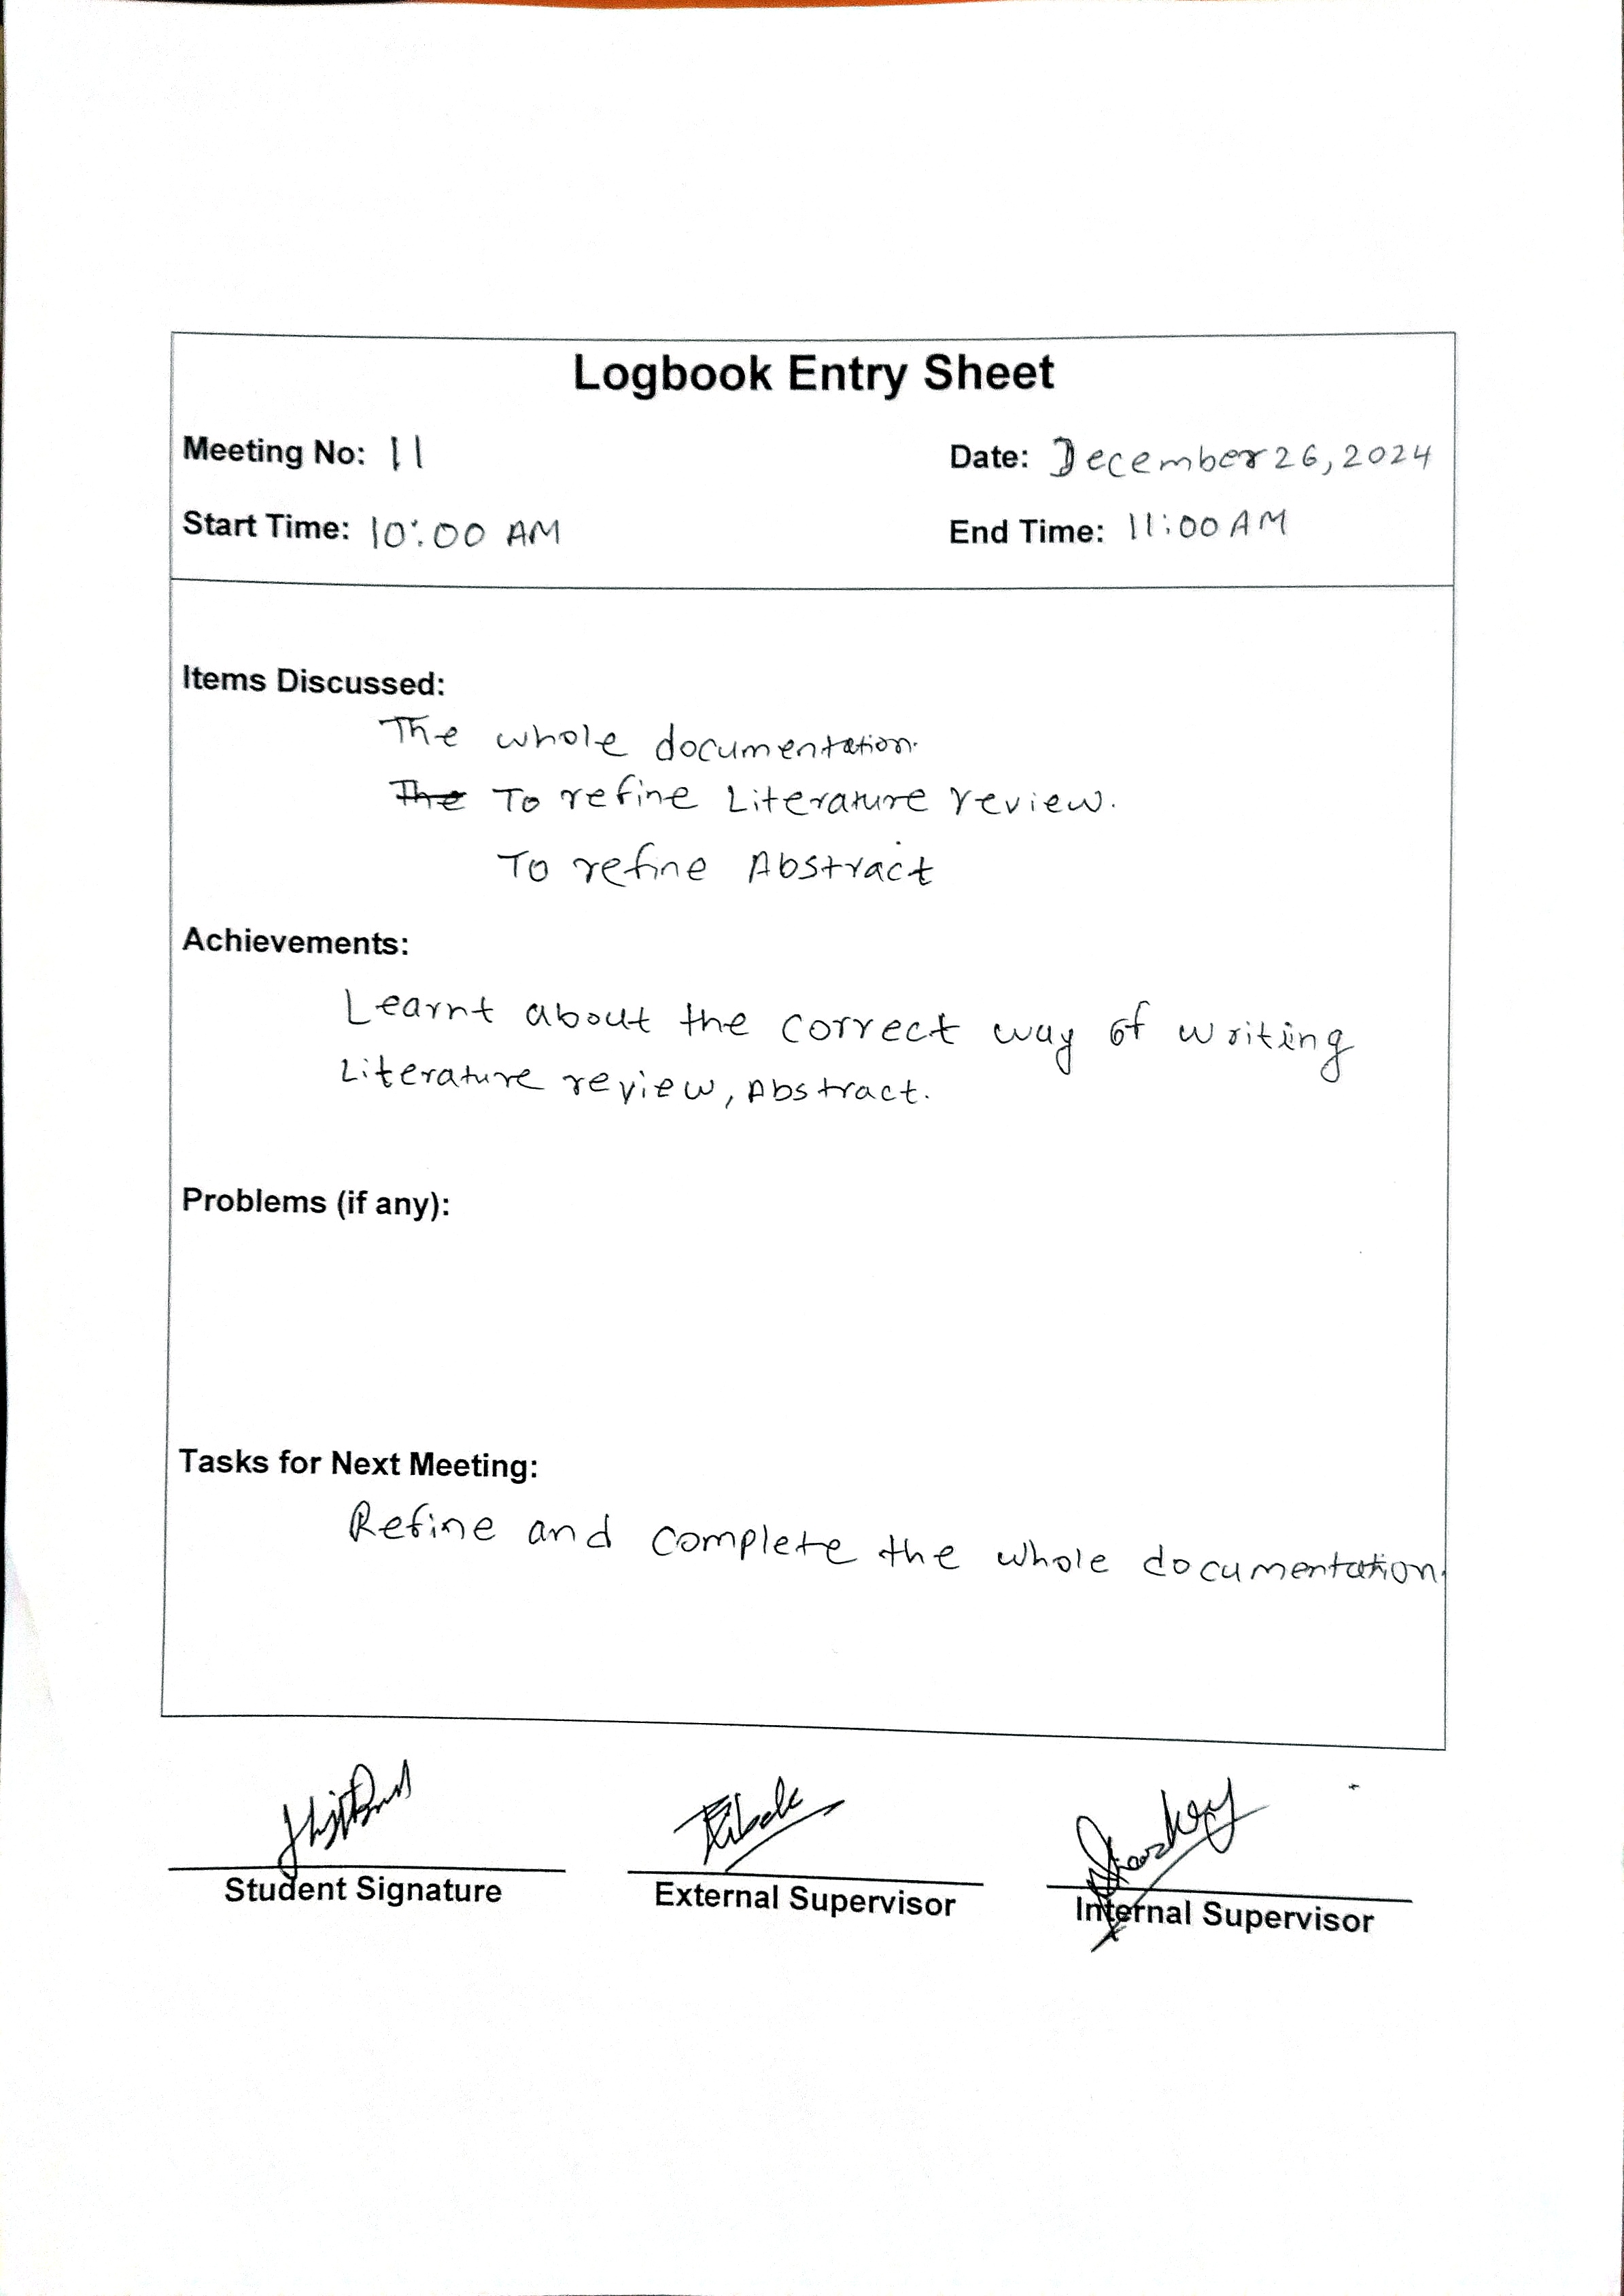 Logbook Entry Sheet
Meeting No: 11 Date: December 26, 2024
Start Time: 10:00 AM End Time: 11:00 AM
Items Discussed:
The whole documentation.
The To refine Literature review.
To refine Abstract
Achievements:
Learnt about the correct way of writing
Literature review, Abstract.
Problems (if any):
Tasks for Next Meeting:
Refine and complete the whole documentation.
Student Signature External Supervisor Internal Supervisor